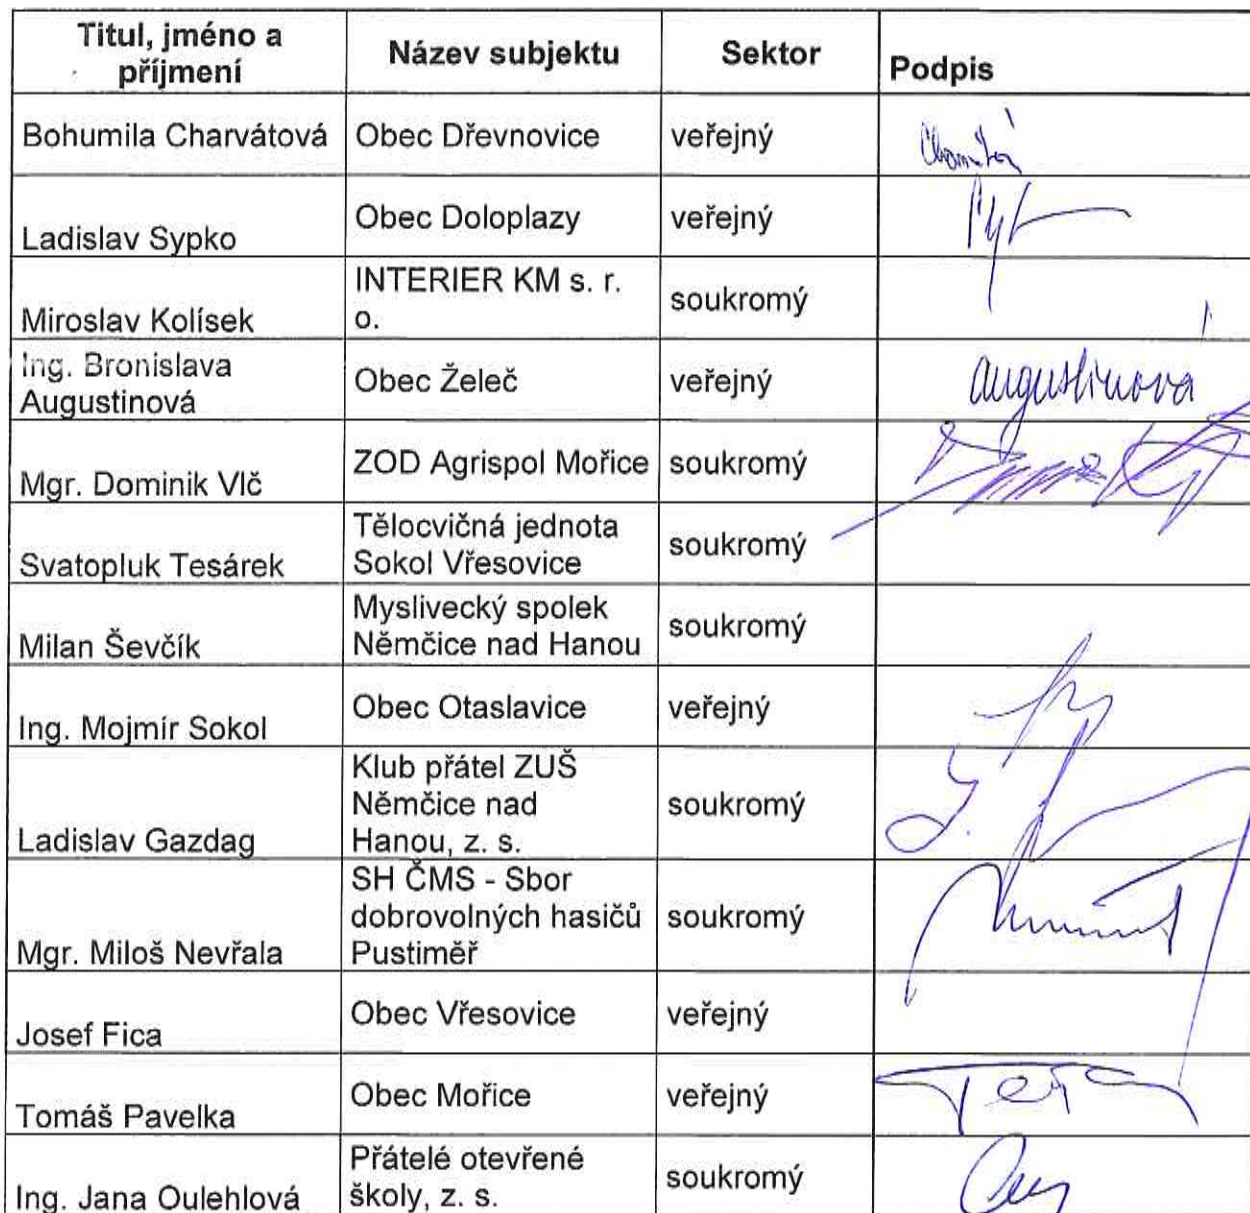 Titul, jméno a
příjmení
Název subjektu
Sektor
Podpis
Bohumila Charvátová
Obec Dřevnovice
veřejný
Ladislav Sypko
Obec Doloplazy
veřejný
Miroslav Kolísek
INTERIER KM s. r.
o.
soukromý
Ing. Bronislava
Augustinová
Obec Želeč
veřejný
Augustinová
Mgr. Dominik Vlč
ZOD Agrispol Mořice
soukromý
Svatopluk Tesárek
Tělocvičná jednota
Sokol Vřesovice
soukromý
Milan Ševčík
Myslivecký spolek
Němčice nad Hanou
soukromý
Ing. Mojmír Sokol
Obec Otaslavice
veřejný
Ladislav Gazdag
Klub přátel ZUŠ
Němčice nad
Hanou, z. s.
soukromý
Mgr. Miloš Nevřala
SH ČMS - Sbor
dobrovolných hasičů
Pustiměř
soukromý
Josef Fica
Obec Vřesovice
veřejný
Tomáš Pavelka
Obec Mořice
veřejný
Ing. Jana Oulehlová
Přátelé otevřené
školy, z. s.
soukromý